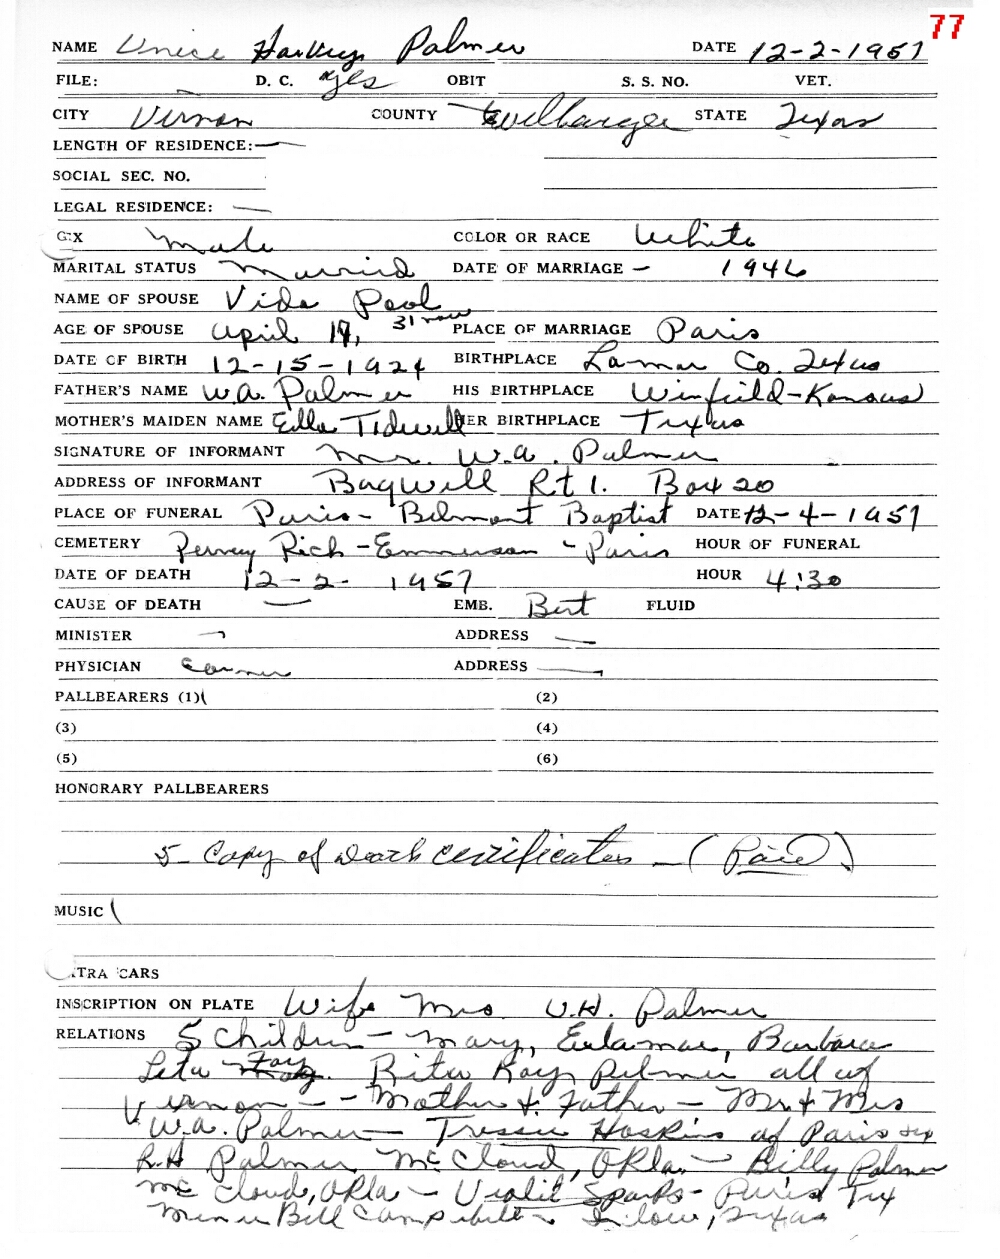 77
NAME Unice Harvey Palmer DATE 12-2-1957
FILE: D. C. yes OBIT S. S. NO. VET.
CITY Vernon COUNTY Wilbarger STATE Texas
LENGTH OF RESIDENCE: —
SOCIAL SEC. NO.
LEGAL RESIDENCE: —
SEX Male COLOR OR RACE White
MARITAL STATUS Married DATE OF MARRIAGE — 1946
NAME OF SPOUSE Vida Pool
AGE OF SPOUSE April 19, 31 now PLACE OF MARRIAGE Paris
DATE OF BIRTH 12-15-1924 BIRTHPLACE Lamar Co. Texas
FATHER'S NAME W.A. Palmer HIS BIRTHPLACE Winfield-Kansas
MOTHER'S MAIDEN NAME Eilla Tidwell HER BIRTHPLACE Texas
SIGNATURE OF INFORMANT Mr. W.A. Palmer
ADDRESS OF INFORMANT Bagwell Rt 1. Box 20
PLACE OF FUNERAL Paris - Belmont Baptist DATE 12-4-1957
CEMETERY Rich - Emmerson - Paris HOUR OF FUNERAL
DATE OF DEATH 12-2-1957 HOUR 4:30
CAUSE OF DEATH — EMB. Bert FLUID
MINISTER ADDRESS —
PHYSICIAN ADDRESS —
PALLBEARERS (1) (2)
(3) (4)
(5) (6)
HONORARY PALLBEARERS
5- Copy of death certificates - (Paid)
MUSIC
XTRA CARS
INSCRIPTION ON PLATE Wife Mrs U.H. Palmer
RELATIONS 5 Children - Mary, Eulamae, Barbara
Leta Fay. Rita Kay Palmer all of
Vernon -- Mother & Father - Mr & Mrs
W.A. Palmer - Tressie Hoskins of Paris Tex
R.H Palmer McCloud, Okla. - Billy Palmer
McCloud, Okla - Violit Sparks - Paris Tex
Bill Campbell - Texas